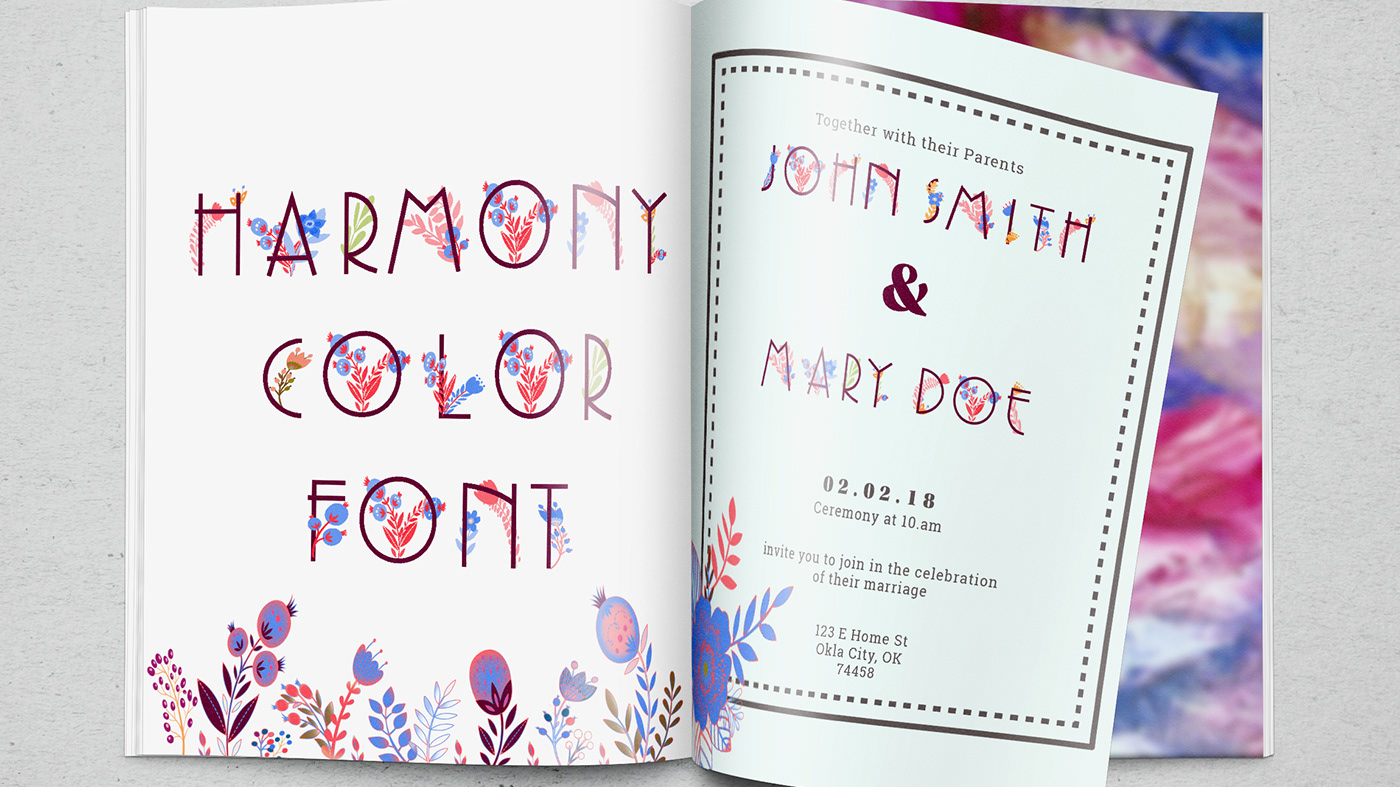 HARMONY
COLOR
FONT
Together with their Parents
JOHN SMITH
&
MARY DOE
02.02.18
Ceremony at 10.am
invite you to join in the celebration
of their marriage
123 E Home St
Okla City, OK
74458